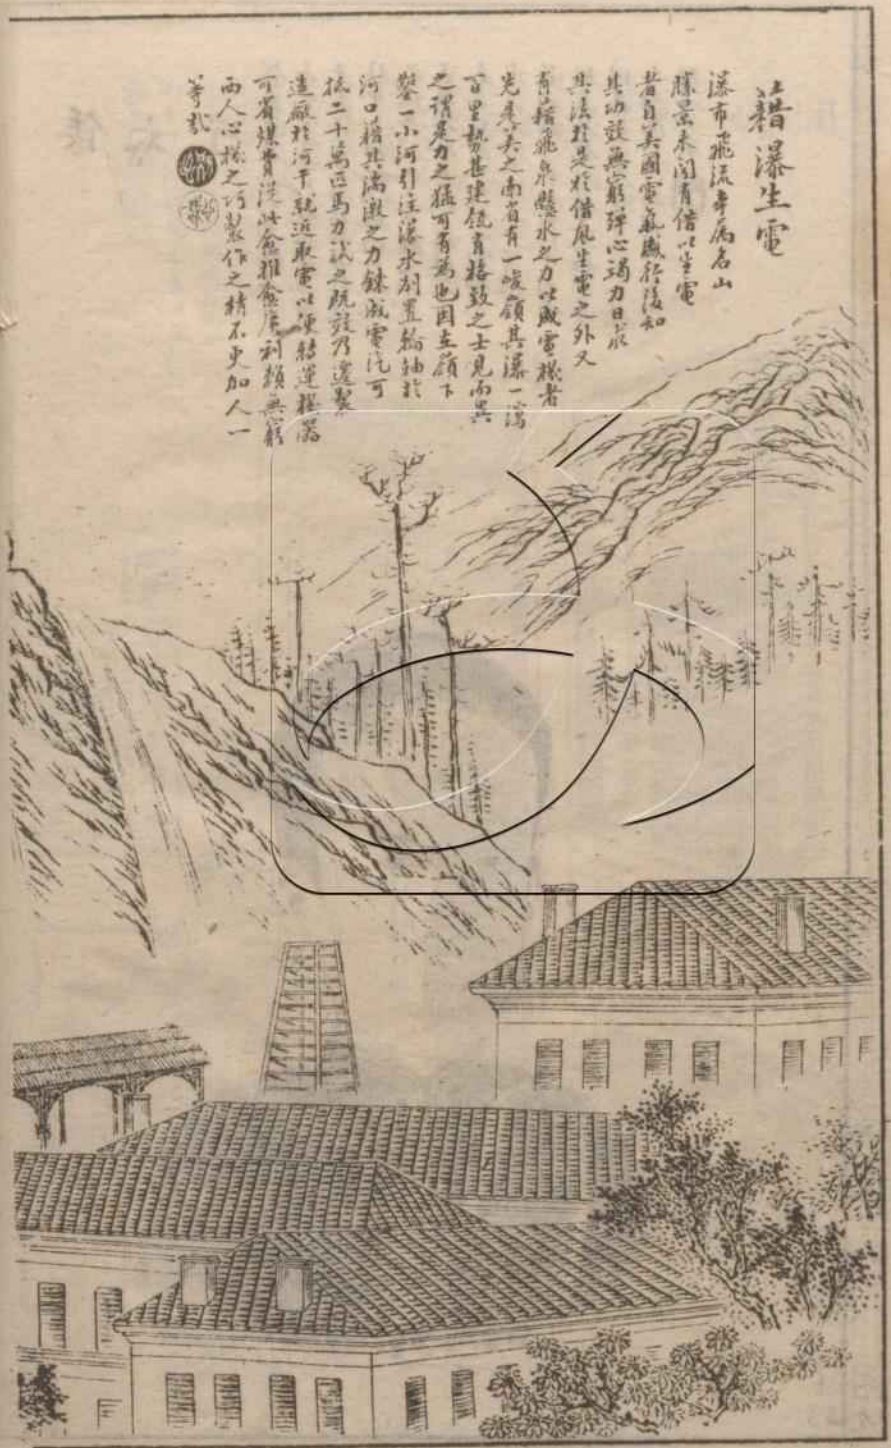 藉瀑生電
瀑布飛流本屬名山
勝景未聞有借以生電
者自美國電氣盛行後知
其功效無窮殫心竭力日求
其法於是於借風生電之外又
有藉飛泉懸水之力以成電機者
先是美之南省有一峻嶺其瀑一瀉
百里勢甚建瓴有格致之士見而異
之謂是力之猛可有為也因在嶺下
鑿一小河引注瀑水別置輪軸於
河口藉其湍激之力鍊成電汽可
抵二十萬匹馬力試之既效乃遂製
造廠於河干就近取電以便轉運機器
可省煤費從此愈推愈廣利賴無窮
西人心機之巧製作之精不更加人一
等哉